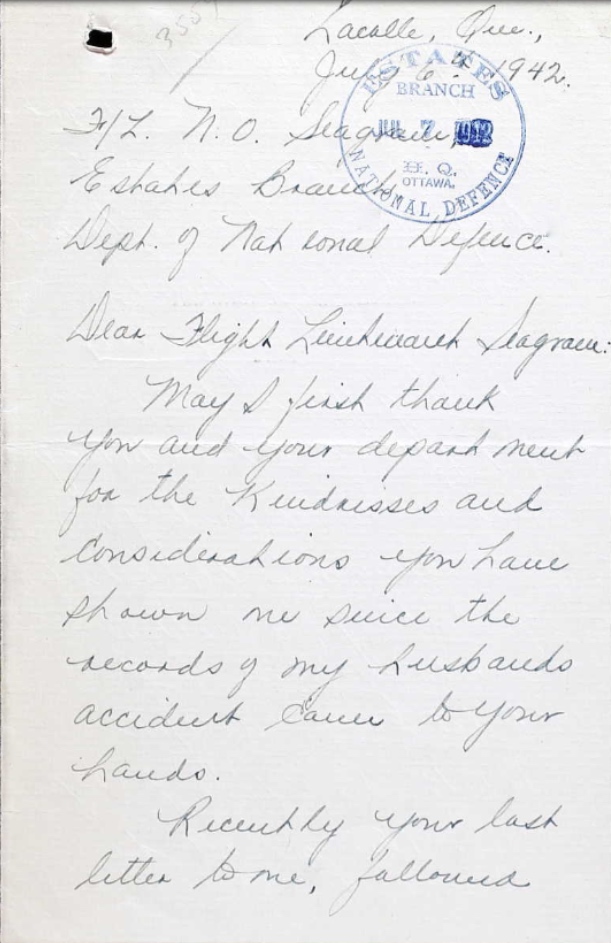 Lacolle, Que.,
July 6th 1942.
ESTATES
BRANCH
JUL 7 1942
H. Q.
OTTAWA.
NATIONAL DEFENCE
F/L. N. O. Seagram,
Estates Branch,
Dept. of National Defence.
Dear Flight Lieutenant Seagram:
May I first thank
you and your department
for the Kindnesses and
Considerations you have
shown me since the
records of my husbands
accident came to your
hands.
Recently your last
letter to me, followed